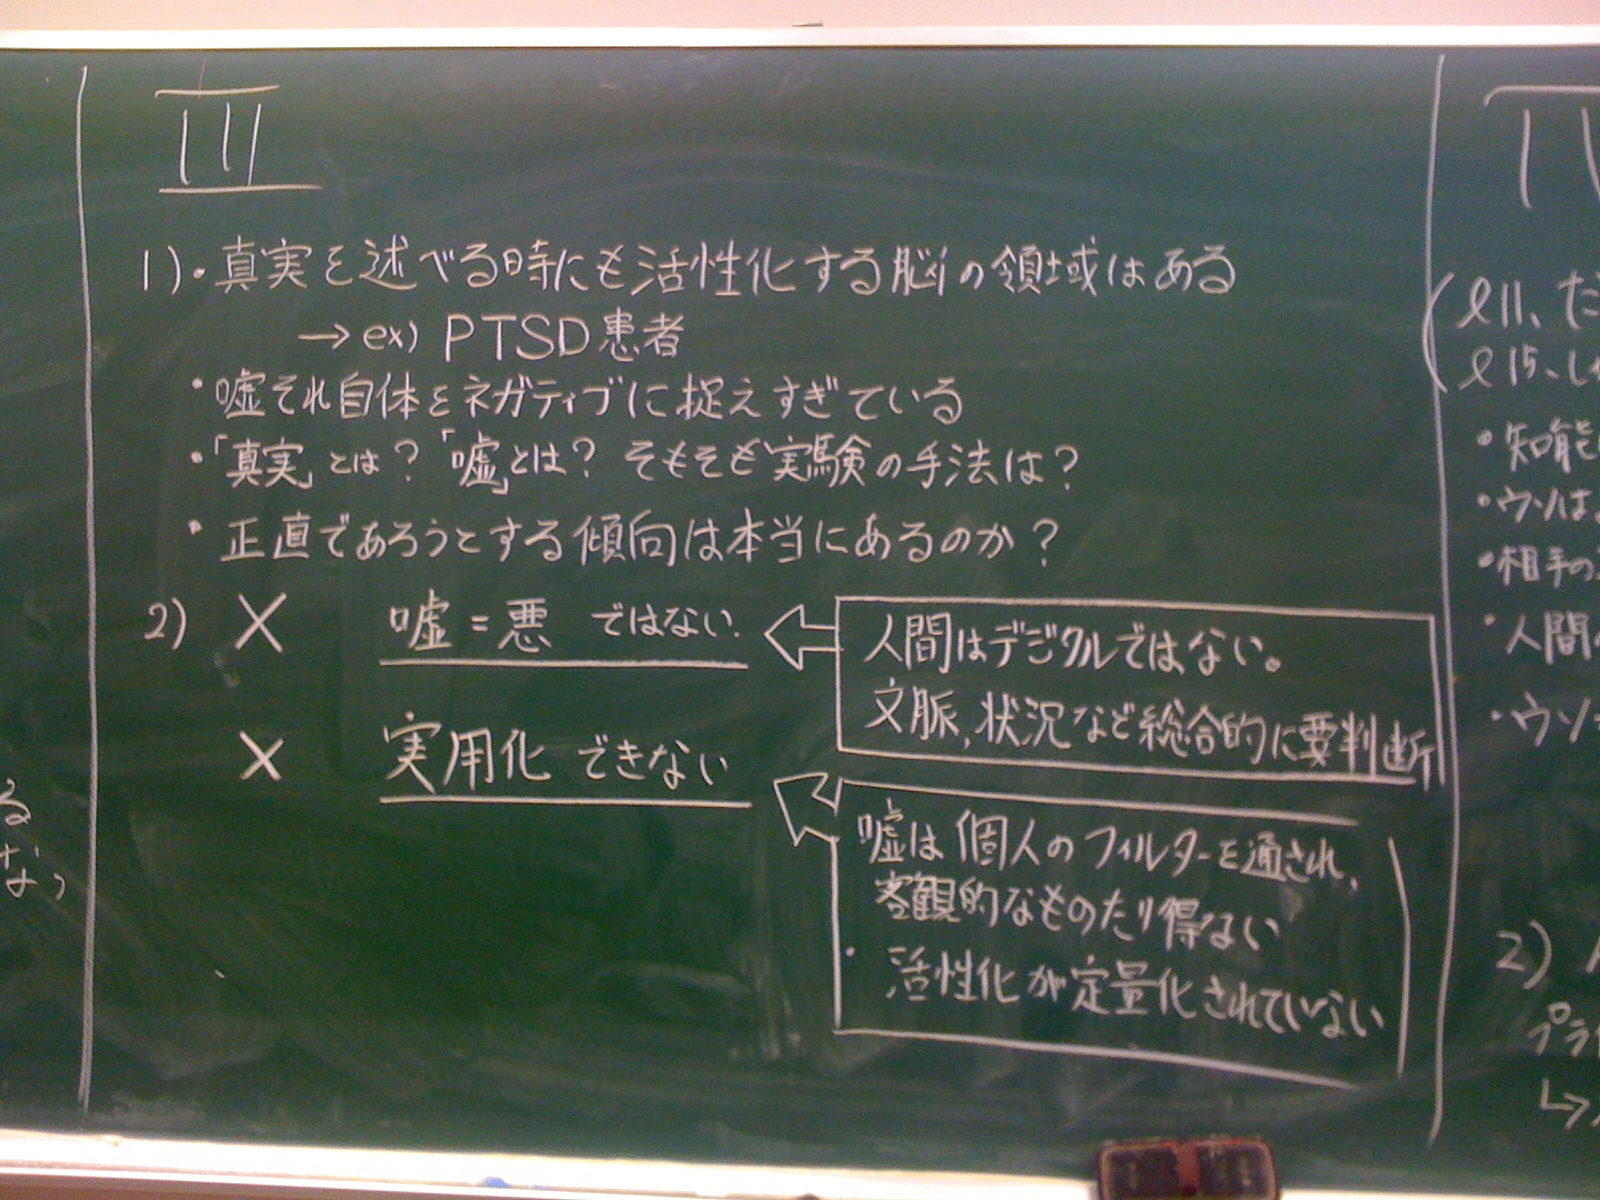 る
な、
III
1)・真実を述べる時にも活性化する脳の領域はある
→ex) PTSD患者
・嘘それ自体をネガティブに捉えすぎている
・「真実」とは?「嘘」とは? そもそも実験の手法は?
・正直であろうとする傾向は本当にあるのか?
2) × 嘘=悪 ではない.
人間はデジタルではない。
文脈,状況など総合的に要判断
× 実用化 できない
嘘は個人のフィルターを通され,
客観的なものたり得ない
・活性化が定量化されていない
IV
(ℓ11、た
ℓ15、し
・知能
・ウソは
・相手の
・人間
・ウソ
2)
プラ
↳